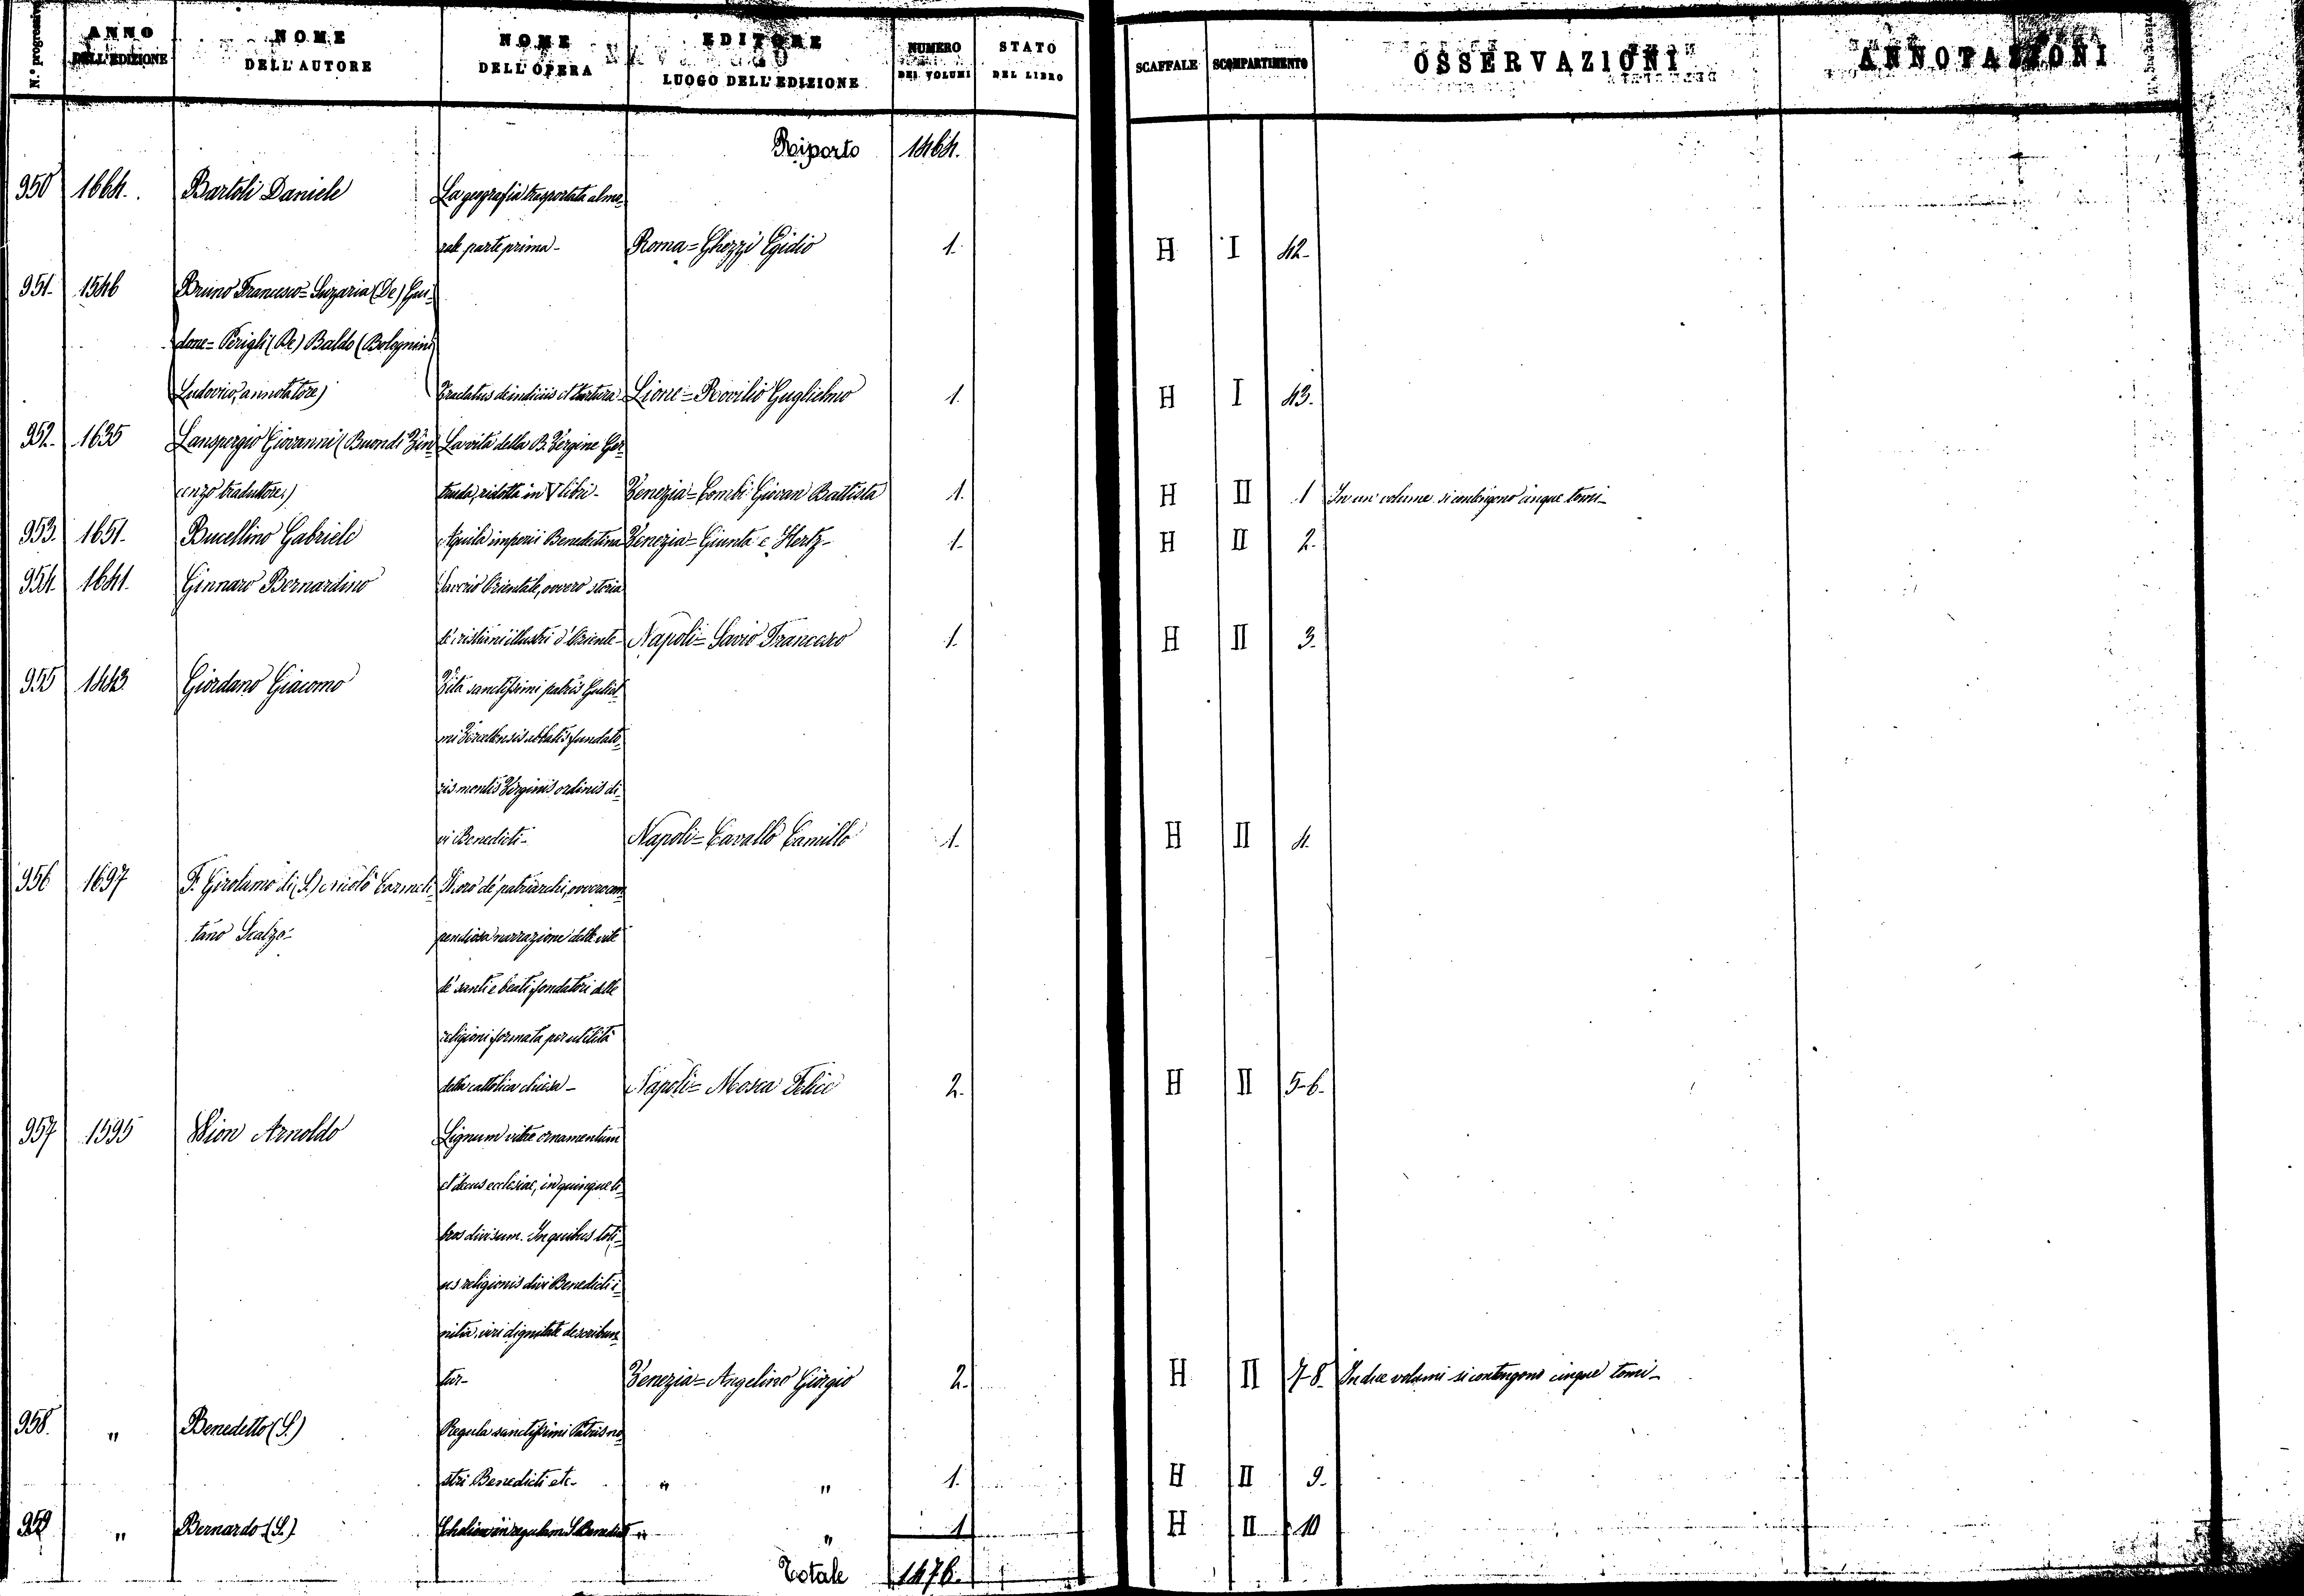 N.º progressivo ANNO DELL'EDIZIONE NOME DELL'AUTORE NOME DELL'OPERA EDITORE LUOGO DELL'EDIZIONE NUMERO DEI VOLUMI STATO DEL LIBRO SCAFFALE SCOMPARTIMENTO OSSERVAZIONI ANNOTAZIONI
Riporto 1464.
950 1664. Bartoli Daniele La geografia trasportata al mo-
rale parte prima- Roma = Ghezzi Egidio 1. H I 42-
951. 1546 Bruno Francesco = Suzaria (De) Gui-
done = Perigli (De) Baldo (Bolognini
Ludovico, annotatore) Tractatus de indiciis et tortura- Lione = Rovilio Guglielmo 1. H I 43.
952. 1635 Lanspergio Giovanni (Buondi Vin- La vita della B. Vergine Ger-
cenzo traduttore.) truda, ridotta in V libri- Venezia = Combi Giovan Battista 1. H II 1 In un volume si contengono cinque tomi-
953. 1651. Bucellino Gabriele Aquila imperii Benedictina Venezia = Giunta e Hertz- 1. H II 2.
954. 1641. Ginnaro Bernardino Saverio Orientale, ovvero storia
de' cristiani illustri d'Oriente- Napoli = Savio Francesco 1. H II 3.
955 1643. Giordano Giacomo Vita sanctissimi patris Guliel-
mi Vercellensis abbatis fundato-
ris montis Virginis ordinis di-
vi Benedicti- Napoli = Cavallo Camillo 1. H II 4.
956 1697 F. Girolamo di (S.) Carmeli-
tano Scalzo- pendiosa narrazione delle vite
de' santi e beati fondatori delle
religioni formata per utilità
della cattolica chiesa- Napoli = Mosca Felice 2. H II 5-6.
957 1595 Wion Arnoldo Lignum vitae ornamentum
et decus ecclesiae, in quinque li-
bros divisum. In quibus toti-
us religionis divi Benedicti i-
nitia, viri dignitate describun-
tur- Venezia = Angelino Giorgio 2. H II 7-8. In due volumi si contengono cinque tomi-
958. " Benedetto (S.) Regula sanctissimi Patris no-
stri Benedicti etc- " " 1. H II 9.
959 " Bernardo (S.) in regulam S. Benedicti " " 1 H II 10
Totale 1476.